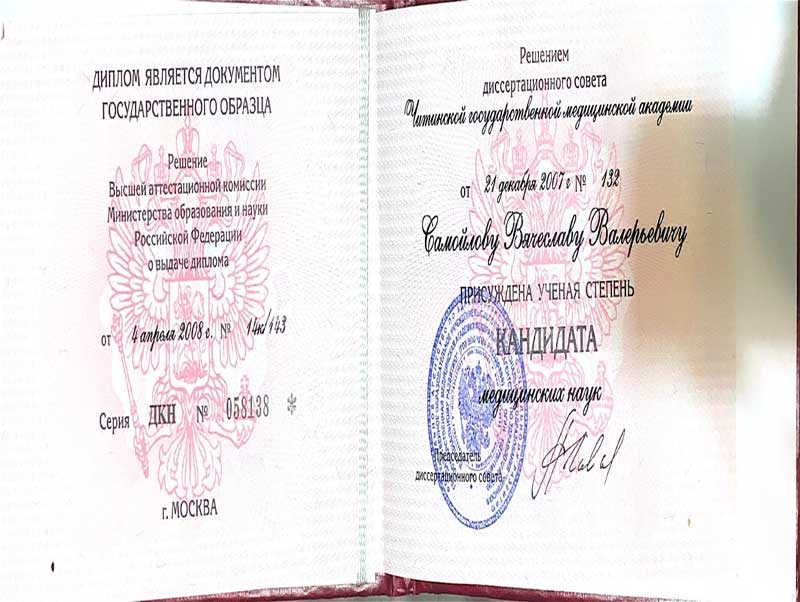 ДИПЛОМ ЯВЛЯЕТСЯ ДОКУМЕНТОМ
ГОСУДАРСТВЕННОГО ОБРАЗЦА
Решение
Высшей аттестационной комиссии
Министерства образования и науки
Российской Федерации
о выдаче диплома
от 4 апреля 2008 г. № 14к/143
Серия ДКН № 058138 *
г. МОСКВА
Решением
диссертационного совета
Читинской государственной медицинской академии
от 21 декабря 2007 г № 132
Самойлову Вячеславу Валерьевичу
ПРИСУЖДЕНА УЧЕНАЯ СТЕПЕНЬ
КАНДИДАТА
медицинских наук
Председатель
диссертационного совета